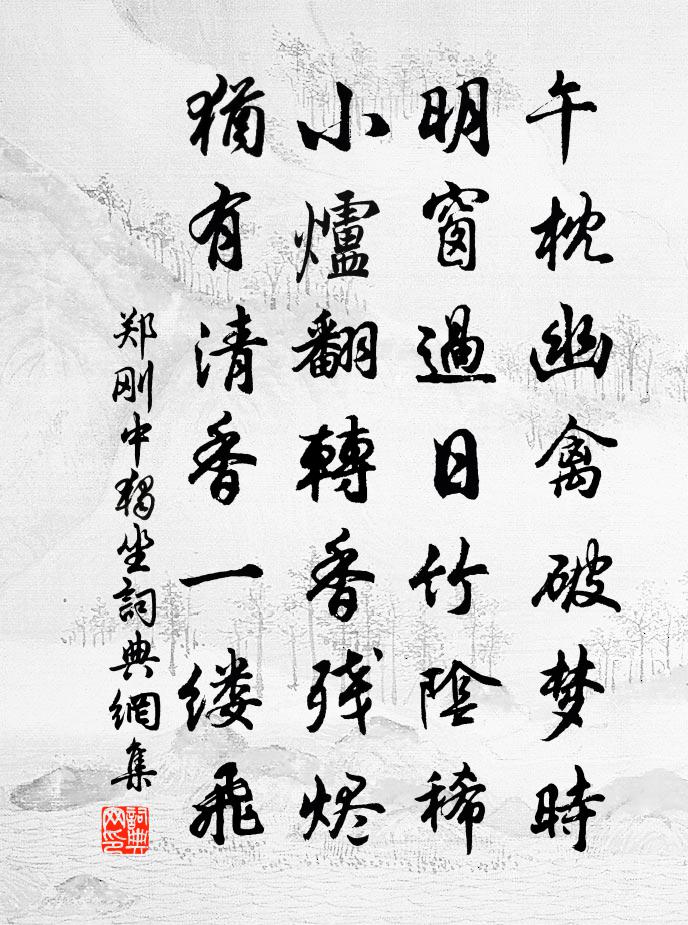 午枕幽禽破梦時
明窗過日竹陰稀
小爐翻轉香残烬
猶有清香一缕飛
郑刚中獨坐詞典網集
詞典网印